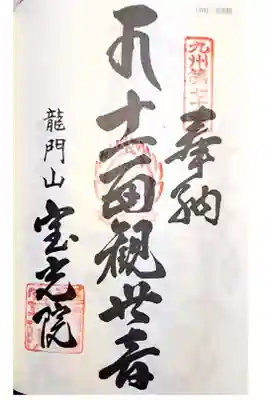 九州第七十
奉納
十一面観世音
龍門山 宝光院